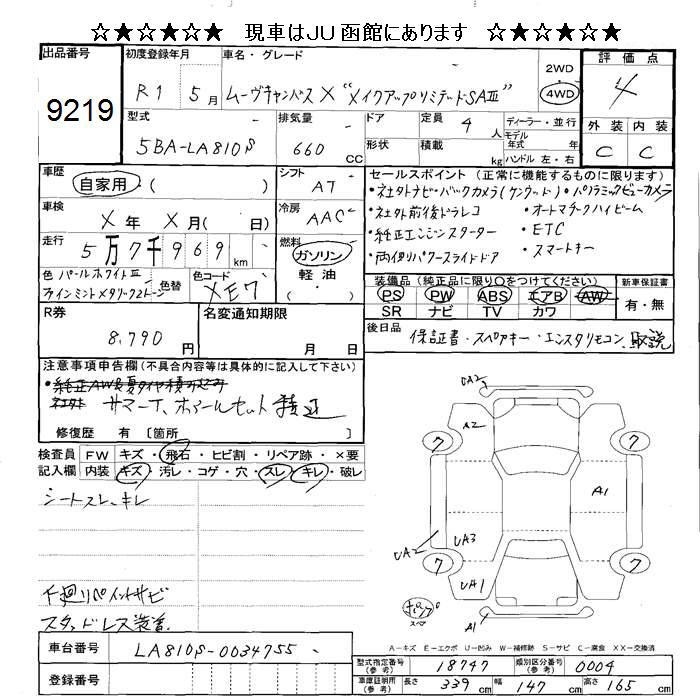 ☆★☆★☆★ 現車はJU函館にあります ☆★☆★☆★
出品番号
9219
初度登録年月
R1 5月
車名・グレード
ムーヴキャンバス X "メイクアップリミテッドSAⅢ"
2WD
4WD
評価点
4
外装 内装
C C
型式
5BA-LA810S
排気量
660 CC
ドア
形状
定員 4人
積載 kg
ディーラー・並行
モデル年式 年式
ハンドル 左・右
車歴
自家用 ( )
シフト
AT
車検
X年 X月( 日)
冷房
AAC
走行
5万7千969km
燃料
ガソリン
軽油
( )
色 パールホワイトⅢ
ファインミントメタリック2トーン
色替
色コード
XE7
セールスポイント (正常に機能するものに限ります)
・社外ナビ・バックカメラ(ケンウッド)・パノラミックビューカメラ
・社外前後ドラレコ ・オートマチックハイビーム
・純正エンジンスターター ・ETC
・両側パワースライドドア ・スマートキー
装備品 (純正品に限り○をつけてください)
PS PW ABS エアB AW
SR ナビ TV カワ
新車保証書
有・無
R券
8,790円
名変通知期限
月 日
後日品
保証書・スペアキー・エンスタリモコン、取説
注意事項申告欄(不具合内容等は具体的に記入して下さい)
サマーT、ホイールセット積込
修復歴 有 〔箇所 〕
検査員記入欄
FW キズ・飛石・ヒビ割・リペア跡・×要
内装 キズ・汚レ・コゲ・穴・スレ・キレ・破レ
シートスレ、キレ
下廻リペイントサビ
スタッドレス装着
UA2
A2
7
7
A1
UA2
UA3
7
7
UA1
A1
スペア
A-キズ E-エクボ U-凹み W-補修跡 S-サビ C-腐食 XX-交換済
車台番号
LA810S-0034755
登録番号
型式指定番号(参考)
18747
類別区分番号(参考)
0004
車庫証明用(参考)
長さ 339cm 幅 147cm 高さ 165cm